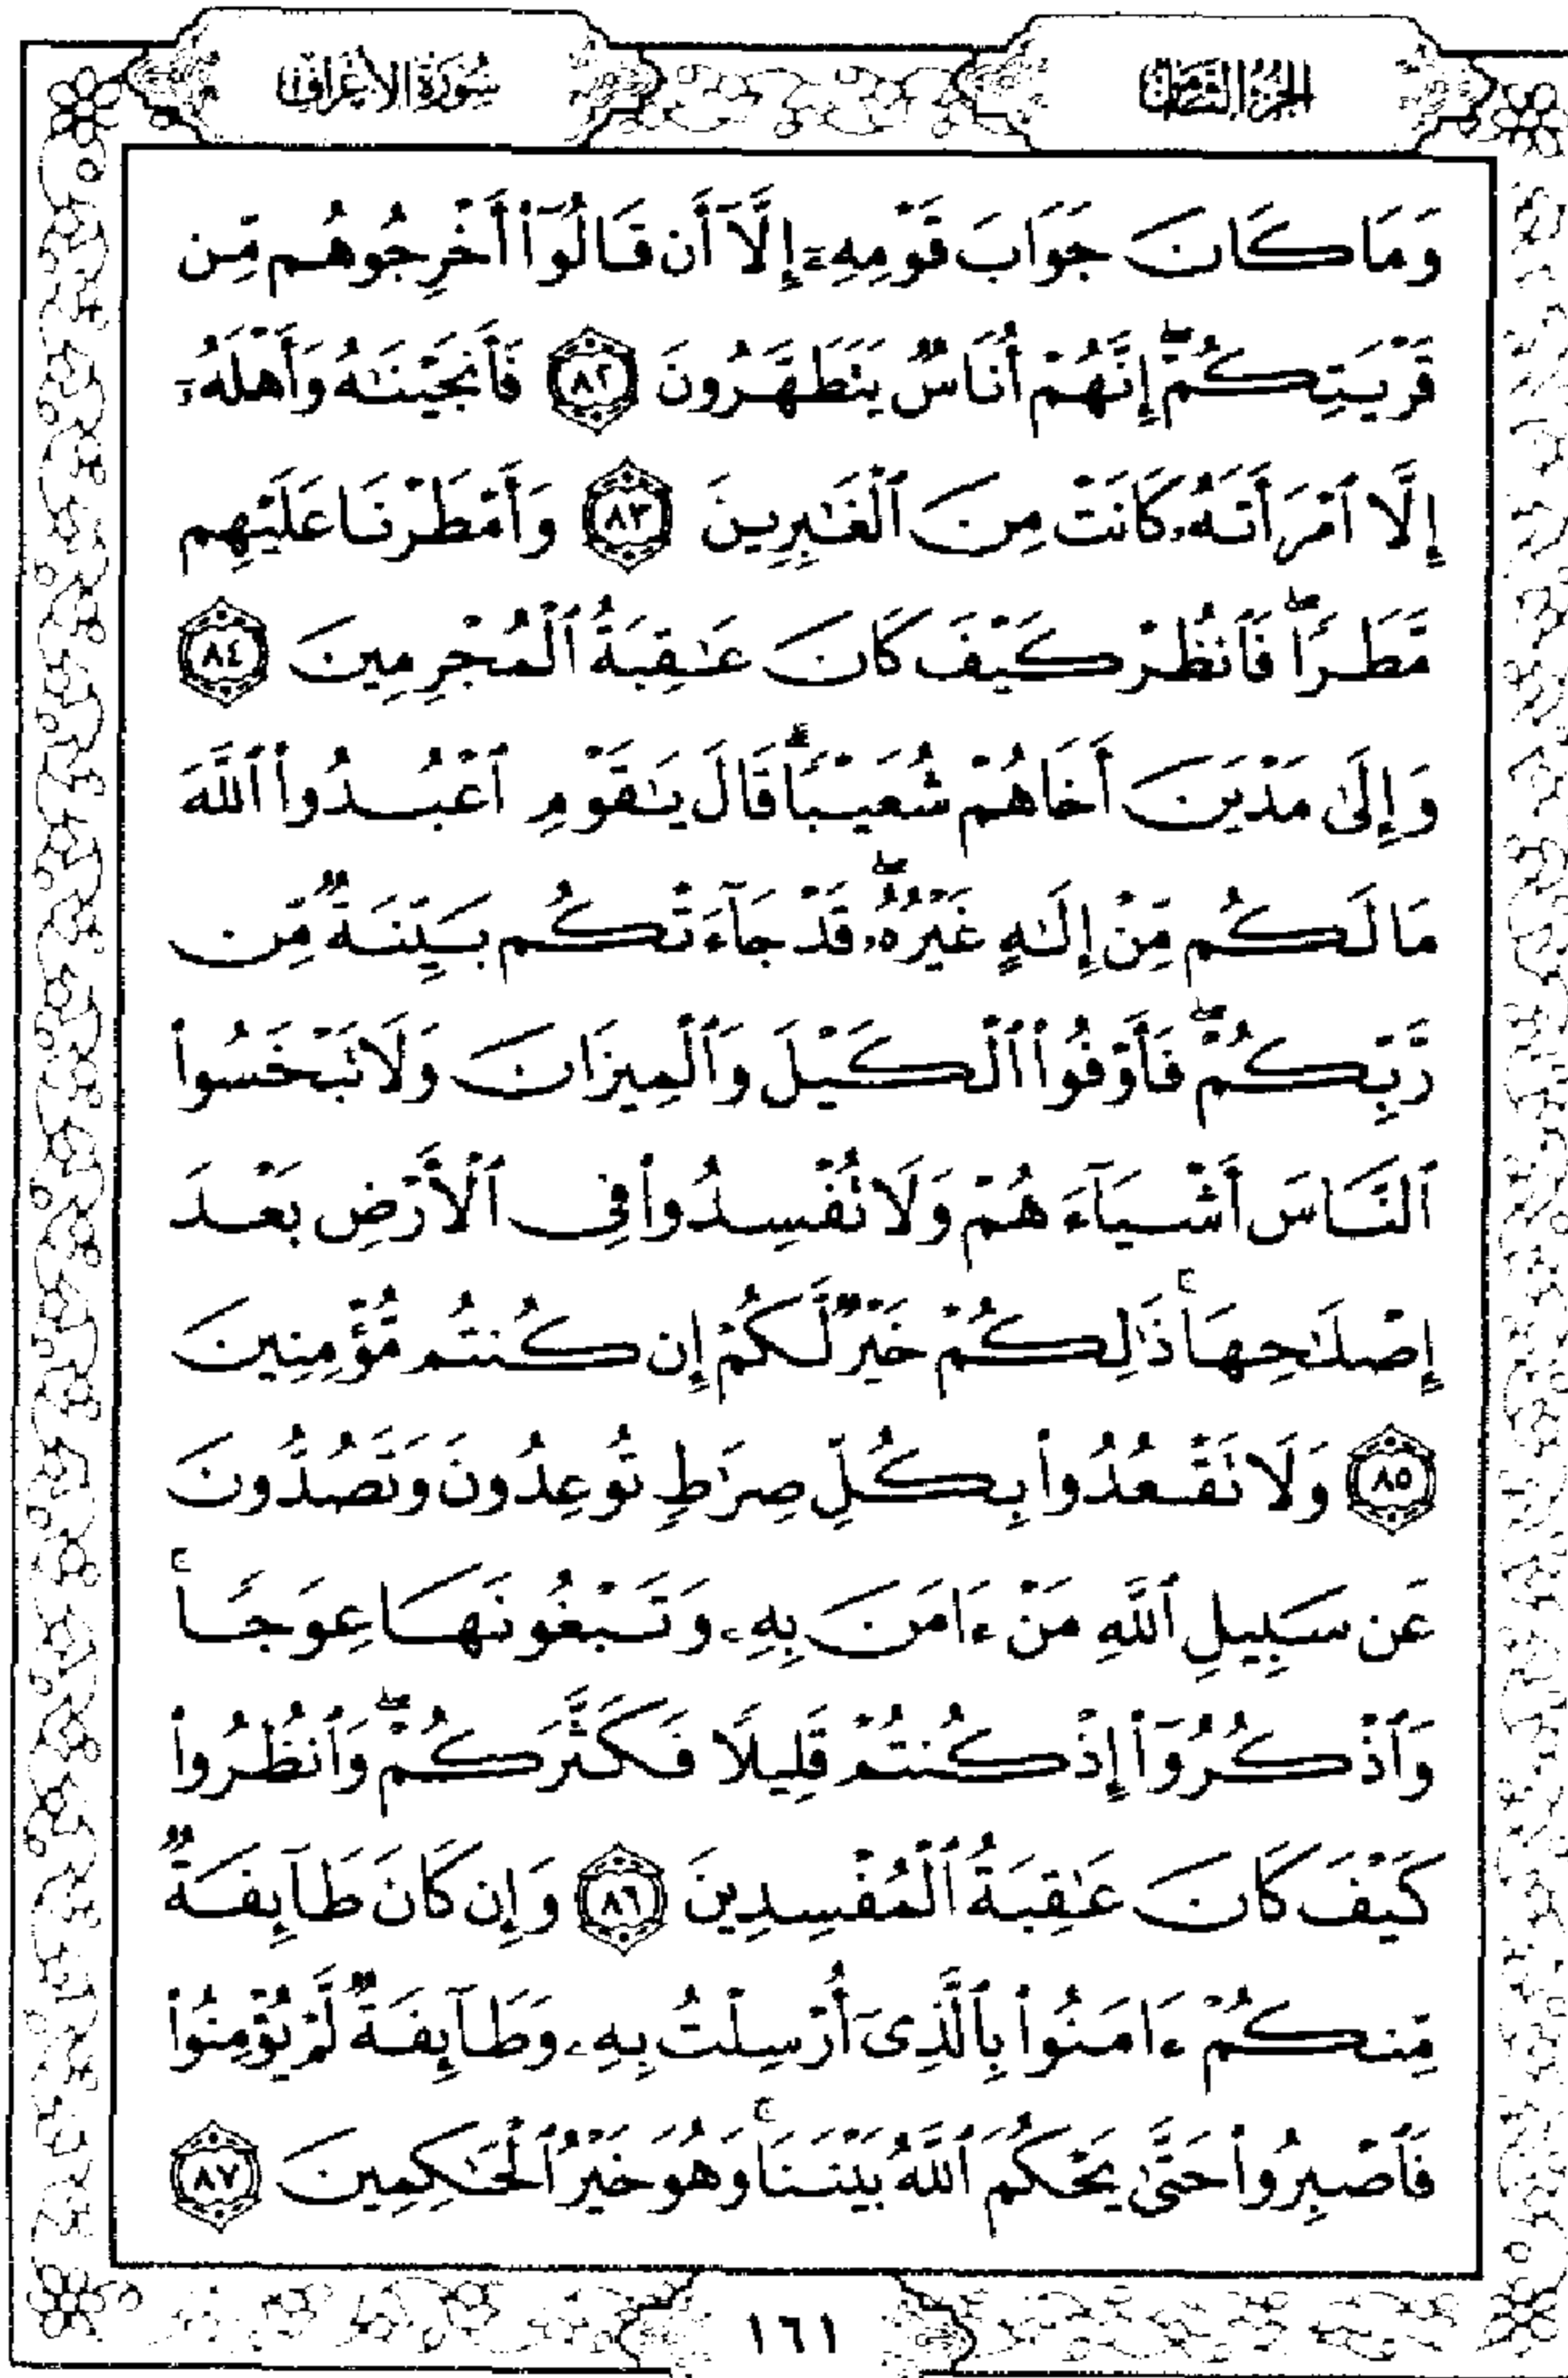 الجزء الثامن
سورة الأعراف
وَمَا كَانَ جَوَابَ قَوْمِهِۦٓ إِلَّآ أَن قَالُوٓا۟ أَخْرِجُوهُم مِّن
قَرْيَتِكُمْ ۖ إِنَّهُمْ أُنَاسٌ يَتَطَهَّرُونَ ﴿٨٢﴾ فَأَنجَيْنَـٰهُ وَأَهْلَهُۥٓ
إِلَّا ٱمْرَأَتَهُۥ كَانَتْ مِنَ ٱلْغَـٰبِرِينَ ﴿٨٣﴾ وَأَمْطَرْنَا عَلَيْهِم
مَّطَرًا ۖ فَٱنظُرْ كَيْفَ كَانَ عَـٰقِبَةُ ٱلْمُجْرِمِينَ ﴿٨٤﴾
وَإِلَىٰ مَدْيَنَ أَخَاهُمْ شُعَيْبًا ۗ قَالَ يَـٰقَوْمِ ٱعْبُدُوا۟ ٱللَّهَ
مَا لَكُم مِّنْ إِلَـٰهٍ غَيْرُهُۥ ۖ قَدْ جَآءَتْكُم بَيِّنَةٌ مِّن
رَّبِّكُمْ ۖ فَأَوْفُوا۟ ٱلْكَيْلَ وَٱلْمِيزَانَ وَلَا تَبْخَسُوا۟
ٱلنَّاسَ أَشْيَآءَهُمْ وَلَا تُفْسِدُوا۟ فِى ٱلْأَرْضِ بَعْدَ
إِصْلَـٰحِهَا ۚ ذَٰلِكُمْ خَيْرٌ لَّكُمْ إِن كُنتُم مُّؤْمِنِينَ
﴿٨٥﴾ وَلَا تَقْعُدُوا۟ بِكُلِّ صِرَٰطٍ تُوعِدُونَ وَتَصُدُّونَ
عَن سَبِيلِ ٱللَّهِ مَنْ ءَامَنَ بِهِۦ وَتَبْغُونَهَا عِوَجًا ۚ
وَٱذْكُرُوٓا۟ إِذْ كُنتُمْ قَلِيلًا فَكَثَّرَكُمْ ۖ وَٱنظُرُوا۟
كَيْفَ كَانَ عَـٰقِبَةُ ٱلْمُفْسِدِينَ ﴿٨٦﴾ وَإِن كَانَ طَآئِفَةٌ
مِّنكُمْ ءَامَنُوا۟ بِٱلَّذِىٓ أُرْسِلْتُ بِهِۦ وَطَآئِفَةٌ لَّمْ يُؤْمِنُوا۟
فَٱصْبِرُوا۟ حَتَّىٰ يَحْكُمَ ٱللَّهُ بَيْنَنَا ۚ وَهُوَ خَيْرُ ٱلْحَـٰكِمِينَ ﴿٨٧﴾
١٦١